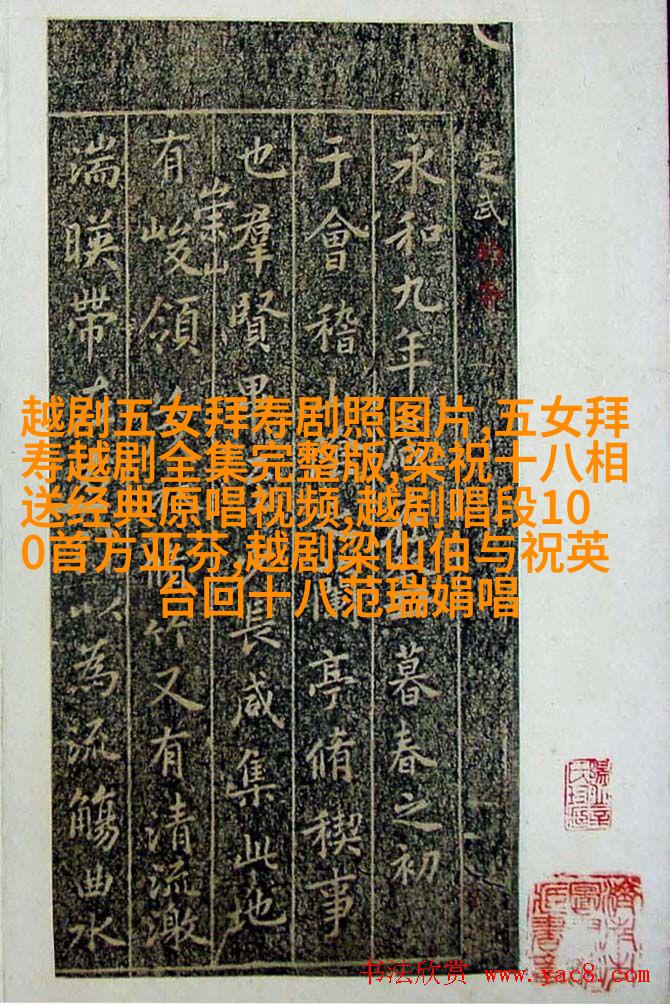 越剧五女拜寿剧照图片,五女拜
寿越剧全集完整版,梁祝十八相
送经典原唱视频,越剧唱段10
0首方亚芬,越剧梁山伯与祝英
台回十八范瑞娟唱
定武
永和九年暮春之初
于會稽亭脩稧事
也羣賢畢長咸集此地
崇山
有峻領又有清流激
湍暎帶以為流觴曲水
书法欣赏 www.yac8.com